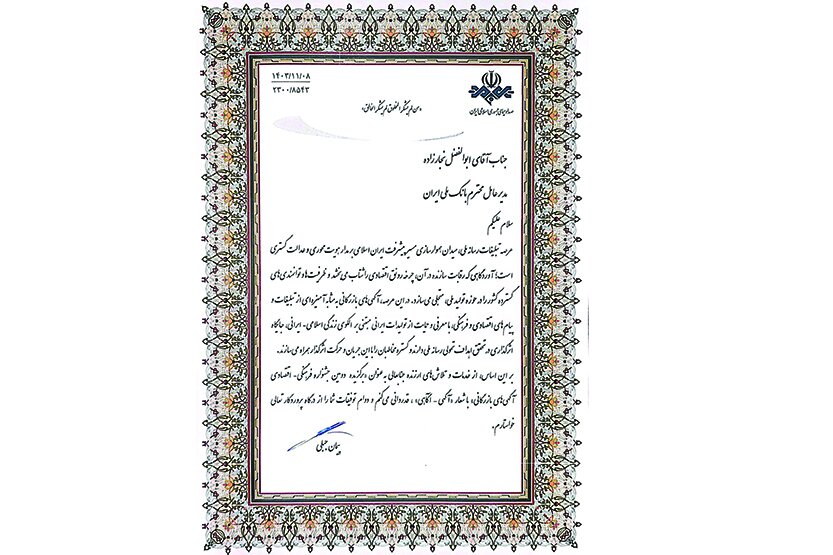 ۱۴۰۳/۱۱/۰۸
۲۳۰۰/۸۵۴۳
صدا و سیمای جمهوری اسلامی ایران
«من لم یشکر المخلوق لم یشکر الخالق»
جناب آقای ابوالفضل نجارزاده
مدیرعامل محترم بانک ملی ایران
سلام علیکم
عرصه تبلیغات رسانه ملی، میدان هموارسازی مسیر پیشرفت ایران اسلامی بر مدار هویت محوری و عدالت گستری
است؛ آوردگاهی که رقابت سازنده در آن، چرخه رونق اقتصادی را شتاب می‌بخشد و ظرفیت‌ها و توانمندی‌های
گسترده کشور را در حوزه تولید ملی، متجلی می‌سازد. در این عرصه، آگهی‌های بازرگانی به مثابه آمیزه‌ای از تبلیغات و
پیام‌های اقتصادی و فرهنگی، با معرفی و حمایت از تولیدات ایرانی مبتنی بر الگوی زندگی اسلامی - ایرانی، جایگاه
اثرگذاری در تحقق اهداف تحولی رسانه ملی دارند و گستره مخاطبان را با این جریان و حرکت اثرگذار همراه می‌سازند.
بر این اساس، از خدمات و تلاش‌های ارزنده جنابعالی به عنوان «برگزیده دومین جشنواره فرهنگی - اقتصادی
آگهی‌های بازرگانی» با شعار «آگهی - آگاهی» ، قدردانی می‌کنم و دوام توفیقات شما را از درگاه پروردگار تعالی
خواستارم.
پیمان جبلی